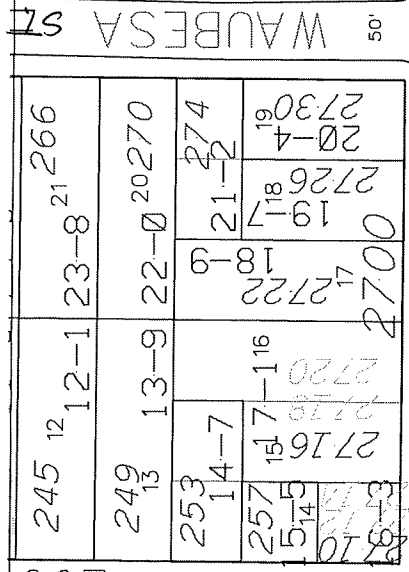 WAUBESA ST
50'
266
21
23-8
270
20
22-0
274
21-2
19
2730
20-4
18
2726
19-7
18-9
2722
17
2700
245
12
12-1
249
13
13-9
253
14-7
16
17-1
2720
2718
2716
15
257
15-5
14
2710
16-3